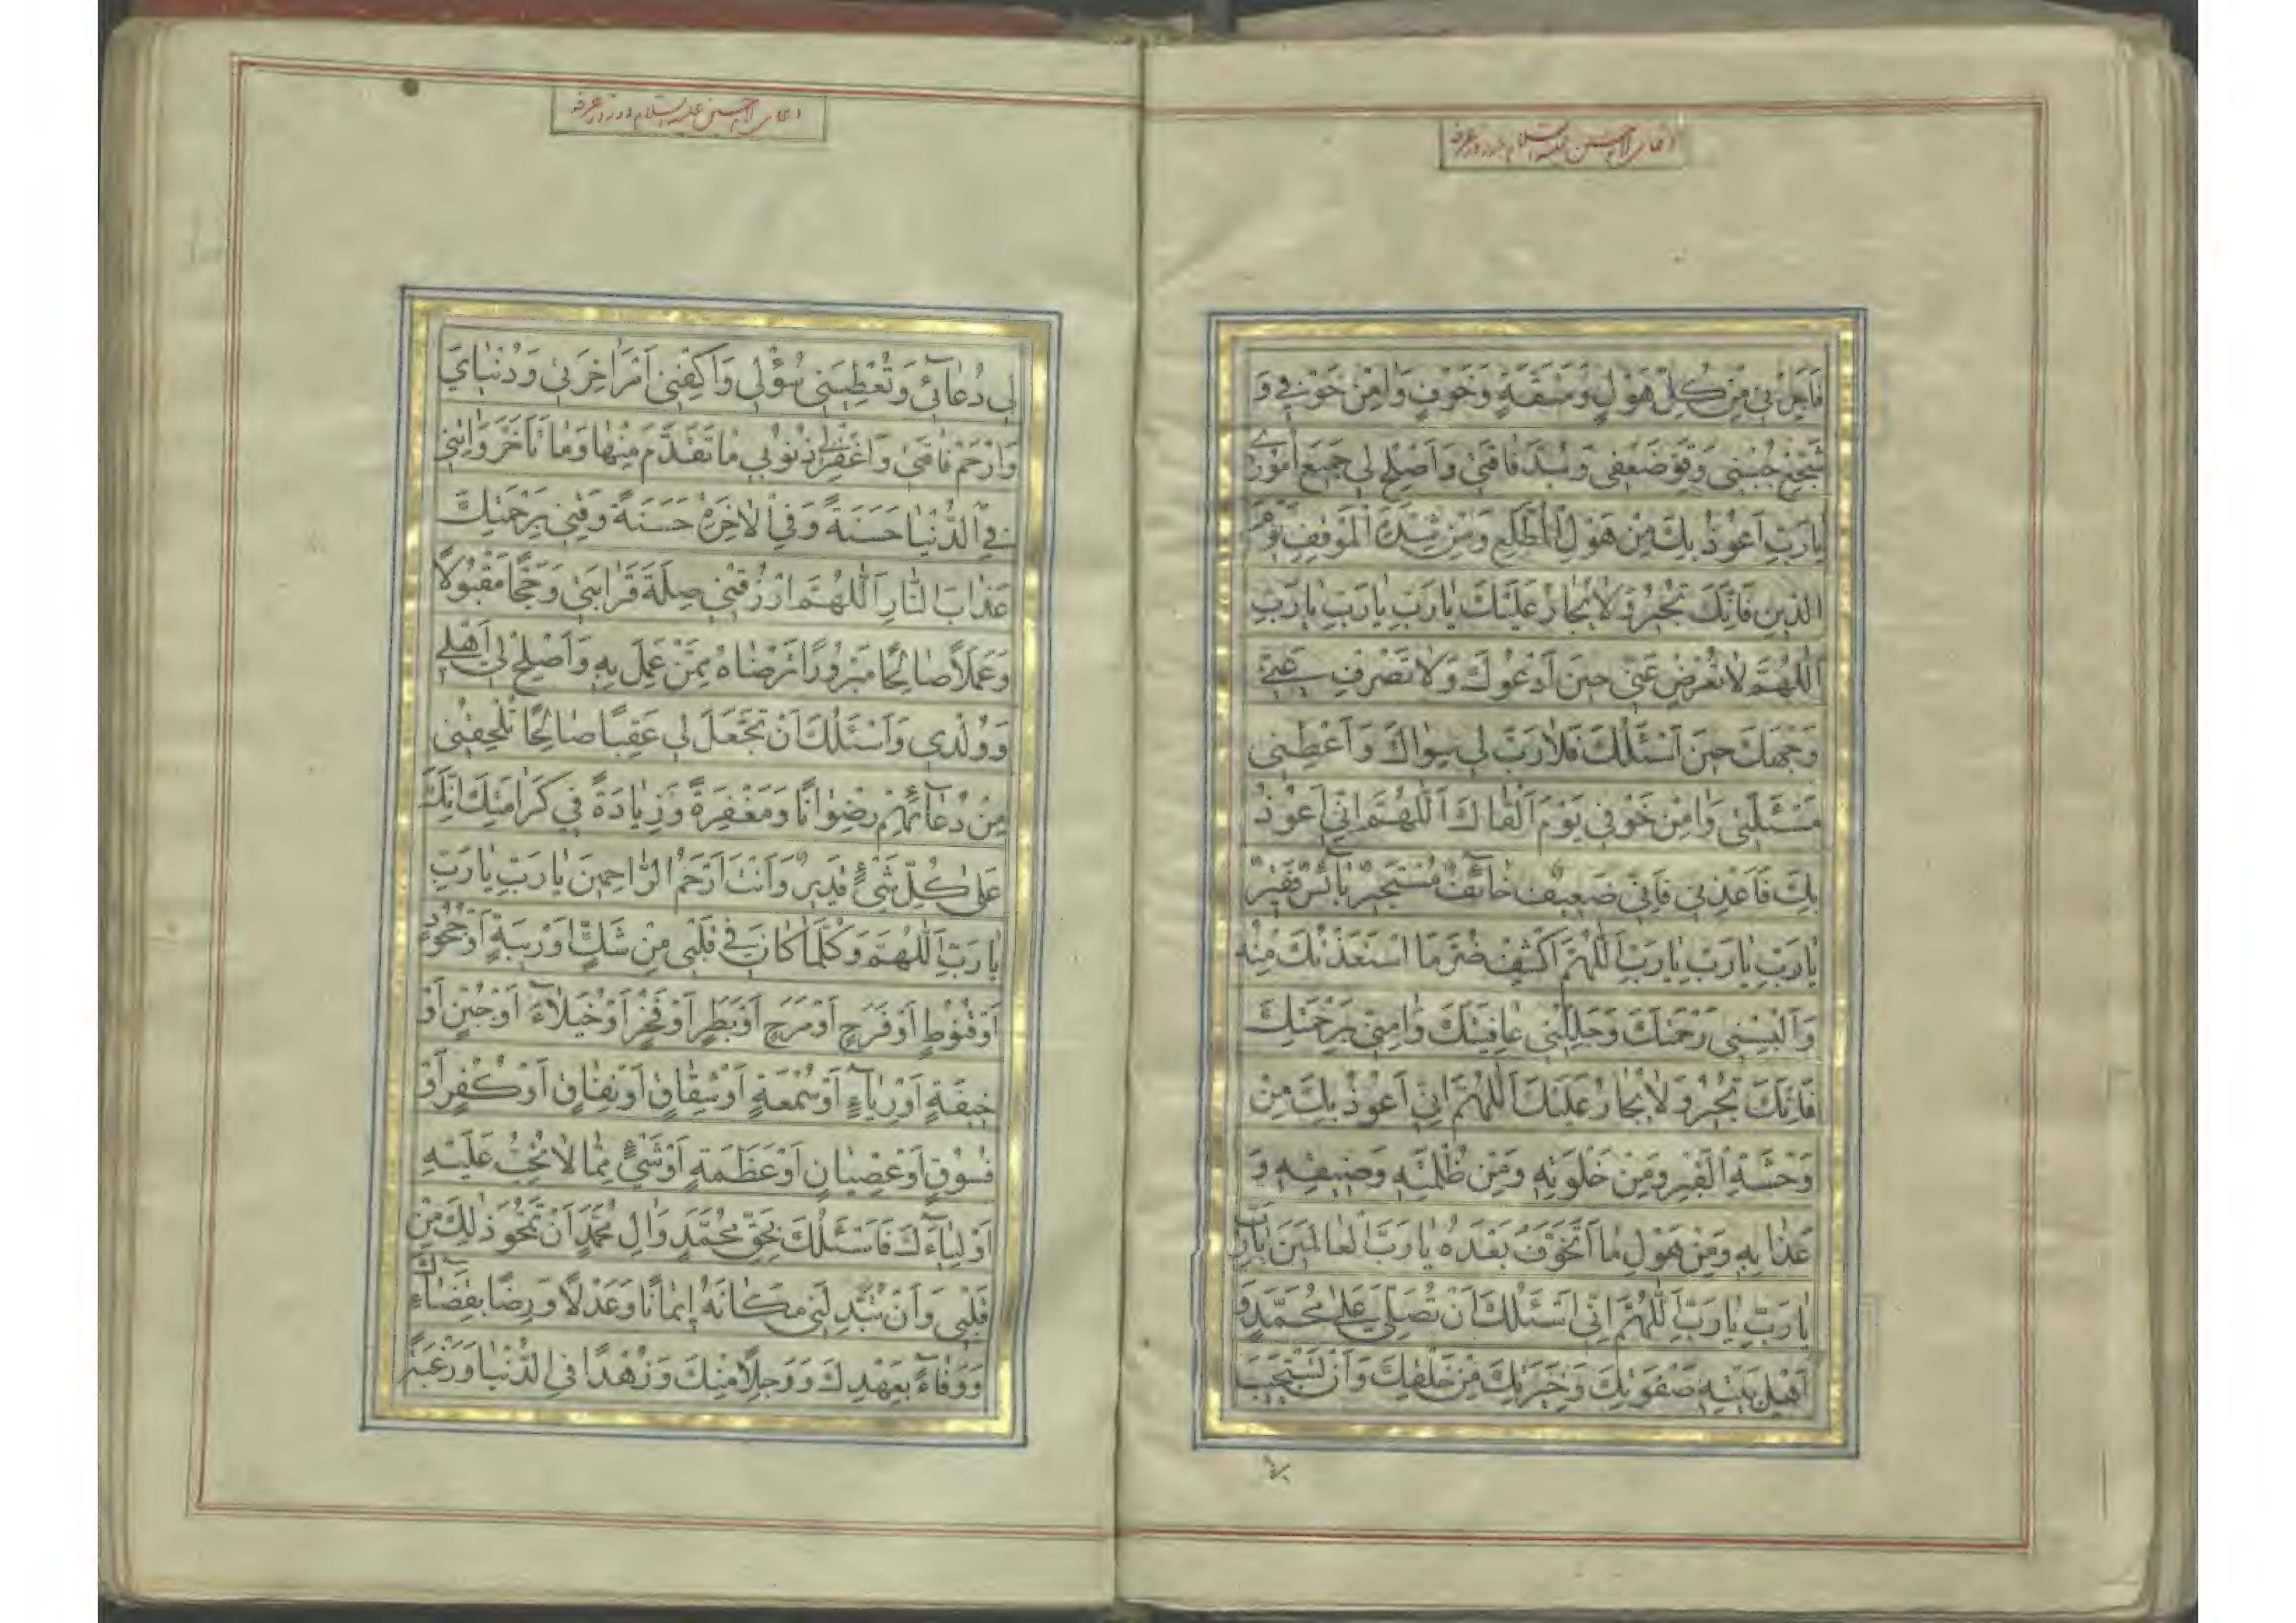 دعای امام حسین علیه السلام در روز عرفه
فَاَجِرْنی مِنْ کُلِّ هَوْلٍ وَمَشَقَّةٍ وَخَوْفٍ وَامِنْ خَوْفی وَ
شَجِّعْ جُبْنی وَقَوِّ ضَعْفی وَسُدَّ فَاقَتی وَاَصْلِحْ لی جَمیعَ اُمُوری
یٰارَبِّ اَعُوذُ بِکَ مِنْ هَوْلِ الْمُطَّلَعِ وَمِنْ شِدَّةِ الْمَوْقِفِ یَوْمَ
الدّینِ فَاِنَّکَ تُجْیرُ وَلٰا یُجٰارُ عَلَیْکَ یٰارَبِّ یٰارَبِّ یٰارَبِّ
اَللّٰهُمَّ لٰا تُعْرِضْ عَنّی حینَ اَدْعُوکَ وَلٰا تَصْرِفْ عَنّی
وَجْهَکَ حینَ اَسْئَلُکَ فَلٰا رَبَّ لی سِوٰاکَ وَاَعْطِنی
مَسْئَلَتی وَامِنْ خَوْفی یَوْمَ اَلْقٰاکَ اَللّٰهُمَّ اِنّی اَعُوذُ
بِکَ فَاَعِذْنی فَاِنّی ضَعیفٌ خٰآئِفٌ مُسْتَجیرٌ بٰآئِسٌ فَقیرٌ
یٰارَبِّ یٰارَبِّ یٰارَبِّ اَللّٰهُمَّ اکْشِفْ ضُرَّ مَا اسْتَعَذْتُکَ مِنْهُ
وَاَلْبِسْنی رَحْمَتَکَ وَجَلِّلْنی عٰافِیَتَکَ وَامِنّی بِرَحْمَتِکَ
فَاِنَّکَ تُجْیرُ وَلٰا یُجٰارُ عَلَیْکَ اَللّٰهُمَّ اِنّی اَعُوذُ بِکَ مِنْ
وَحْشَةِ الْقَبْرِ وَمِنْ خَلْوَتِهِ وَمِنْ ظُلْمَتِهِ وَضیقِهِ وَ
عَذٰابِهِ وَمِنْ هَوْلِ مٰا اَتَخَوَّفُ بَعْدَهُ یٰارَبَّ الْعٰالَمینَ یٰارَبِّ
یٰارَبِّ یٰارَبِّ اَللّٰهُمَّ اِنّی اَسْئَلُکَ اَنْ تُصَلِّیَ عَلیٰ مُحَمَّدٍ وَ
اَهْلِ بَیْتِهِ صَفْوَتِکَ وَخِیَرَتِکَ مِنْ خَلْقِکَ وَاَنْ تَسْتَجیبَ
دعای امام حسین علیه السلام در روز عرفه
لی دُعٰآئی وَتُعْطِیَنی سُؤْلی وَاکْفِنی اَمْرَ اٰخِرَتی وَدُنْیٰایَ
وَارْحَمْ فٰاقَتی وَاغْفِرْ ذُنُوبی مٰا تَقَدَّمَ مِنْهٰا وَمٰا تَاَخَّرَ وَاٰتِنی
فِی الدُّنْیٰا حَسَنَةً وَفِی الْاٰخِرَةِ حَسَنَةً وَقِنی بِرَحْمَتِکَ
عَذٰابَ النّٰارِ اَللّٰهُمَّ ارْزُقْنی صِلَةَ قَرٰابَتی وَحَجًّا مَقْبُولًا
وَعَمَلًا صٰالِحًا مَبْرُورًا تَرْضٰاهُ مِمَّنْ عَمِلَ بِهِ وَاَصْلِحْ لی اَهْلی
وَوُلْدی وَاَسْئَلُکَ اَنْ تَجْعَلَ لی عَقِبًا صٰالِحًا تُلْحِقُنی
مِنْ دُعٰآئِهِمْ رِضْوٰانًا وَمَغْفِرَةً وَزِیٰادَةً فی کَرٰامَتِکَ اِنَّکَ
عَلیٰ کُلِّ شَیْءٍ قَدیرٌ وَاَنْتَ اَرْحَمُ الرّٰاحِمینَ یٰارَبِّ یٰارَبِّ
یٰارَبِّ اَللّٰهُمَّ وَکُلَّمٰا کٰانَ فی قَلْبی مِنْ شَکٍّ اَوْ رَیْبَةٍ اَوْ جُحُودٍ
اَوْ قُنُوطٍ اَوْ فَرَحٍ اَوْ مَرَحٍ اَوْ بَطَرٍ اَوْ فَخْرٍ اَوْ خُیَلٰآءَ اَوْ جُبْنٍ اَوْ
خیفَةٍ اَوْ رِیٰآءٍ اَوْ سُمْعَةٍ اَوْ شِقٰاقٍ اَوْ نِفٰاقٍ اَوْ کُفْرٍ اَوْ
فُسُوقٍ اَوْ عِصْیٰانٍ اَوْ عَظَمَةٍ اَوْ شَیْءٍ مِمّٰا لٰا تُحِبُّ عَلَیْهِ
اَوْلِیٰآءَکَ فَاَسْئَلُکَ بِحَقِّ مُحَمَّدٍ وَاٰلِ مُحَمَّدٍ اَنْ تَمْحُوَ ذٰلِکَ مِنْ
قَلْبی وَاَنْ تُبَدِّلَنی مَکٰانَهُ اِیمٰانًا وَعَدْلًا وَرِضًا بِقَضٰآئِکَ
وَوَفٰآءً بِعَهْدِکَ وَوَجِلًا مِنْکَ وَزُهْدًا فِی الدُّنْیٰا وَرَغْبَةً